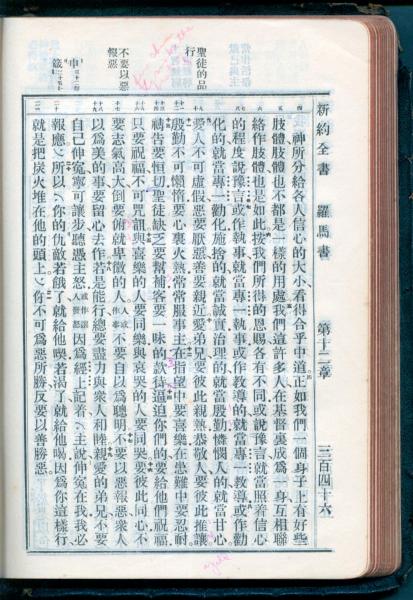 新約全書 羅馬書 第十二章 三百四十六
聖徒的品行
不要以惡報惡
神所分給各人信心的大小看得合乎中道正如我們一個身子上有好些
肢體肢體也不都是一樣的用處我們這許多人在基督裏成爲一身互相聯
絡作肢體也是如此按我們所得的恩賜各有不同或說豫言就當照着信心
的程度說豫言或作執事就當專一執事或作教導的就當專一教導或作勸
化的就當專一勸化施捨的就當誠實治理的就當殷勤憐憫人的就當甘心
愛人不可虛假惡要厭惡善要親近愛弟兄要彼此親熱恭敬人要彼此推讓
殷勤不可懶惰要心裏火熱常常服事主在指望中要喜樂在患難中要忍耐
禱告要恒切聖徒缺乏要幫補客要一味的款待逼迫你們的要給他們祝福
只要祝福不可咒詛與喜樂的人要同樂與哀哭的人要同哭要彼此同心不
要志氣高大倒要俯就卑微的人 不要自以爲聰明不要以惡報惡衆人
以爲美的事要留心去作若是能行總要盡力與衆人和睦親愛的弟兄不要
自己伸冤寧可讓步聽憑主怒 因爲經上記着主說伸冤在我我必
報應所以你的仇敵若餓了就給他喫若渴了就給他喝因爲你這樣行
就是把炭火堆在他的頭上你不可爲惡所勝反要以善勝惡